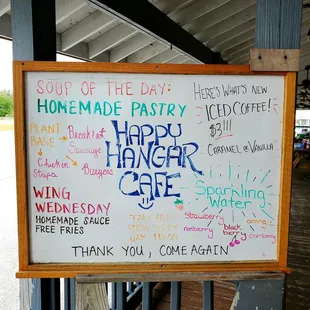 SOUP OF THE DAY:
HOMEMADE PASTRY
PLANT
BASE
Breakfast
Sausage
Chicken
Strips
Burgers
WING
WEDNESDAY
HOMEMADE SAUCE
FREE FRIES
HAPPY
HANGAR
CAFE
HERE'S WHAT'S NEW
ICED COFFEE!
$3!!!
CARAMEL or VANILLA
Sparkling
Water
Strawberry
blackberry
cranberry
THANK YOU, COME AGAIN